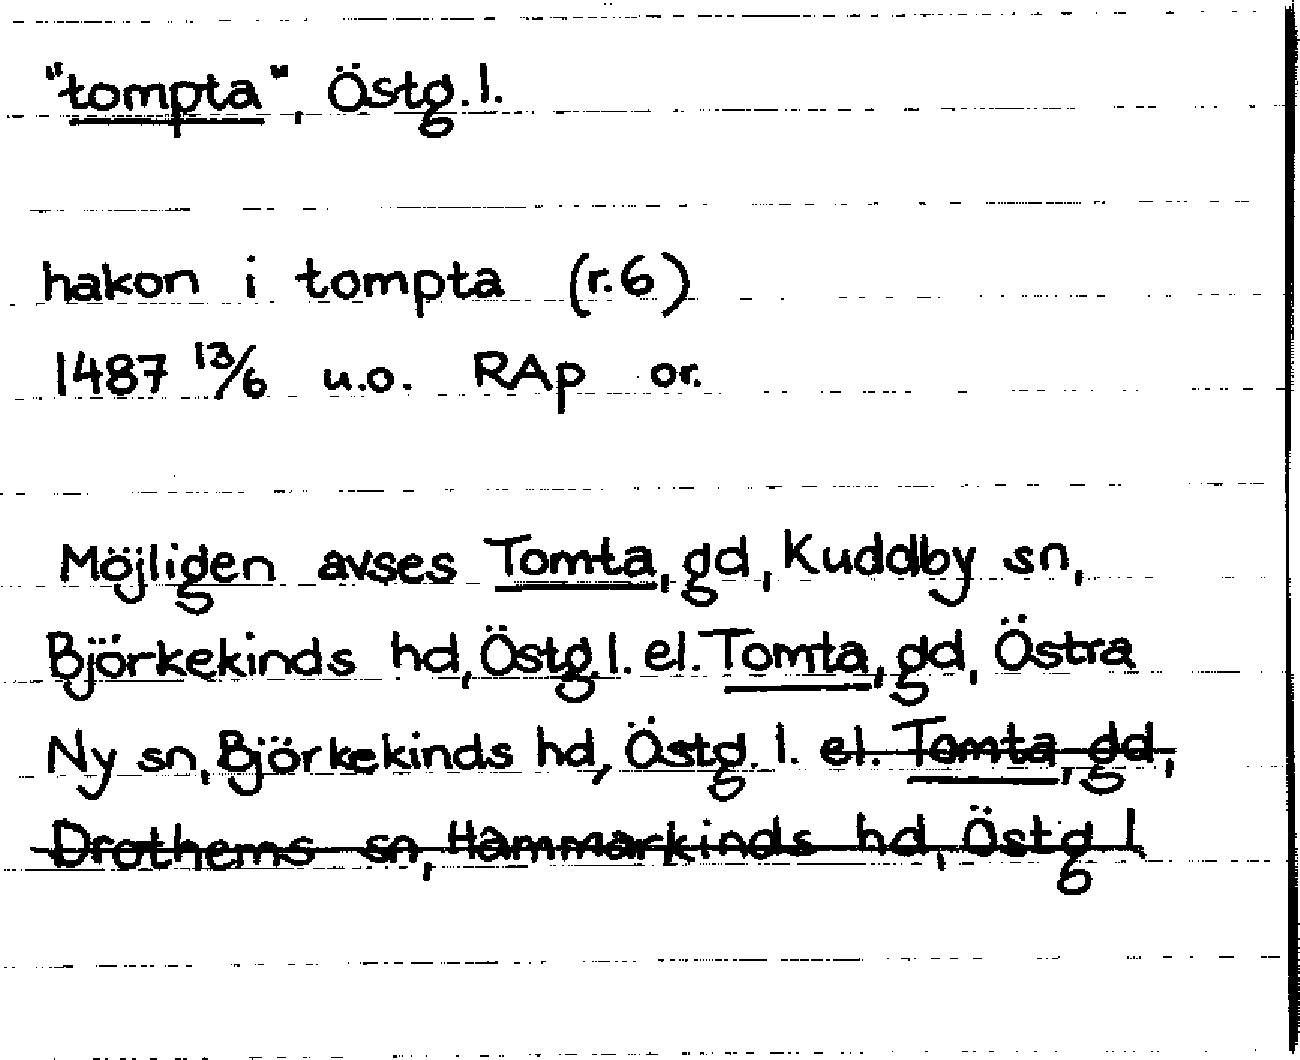 "tompta", Östg.l.
hakon i tompta (r.6)
1487 13/6 u.o. RAp or.
Möjligen avses Tomta, gd, Kuddby sn,
Björkekinds hd, Östg.l. el. Tomta, gd, Östra
Ny sn, Björkekinds hd, Östg. l. el. Tomta, gd,
Drothems sn, Hammarkinds hd, Östg l